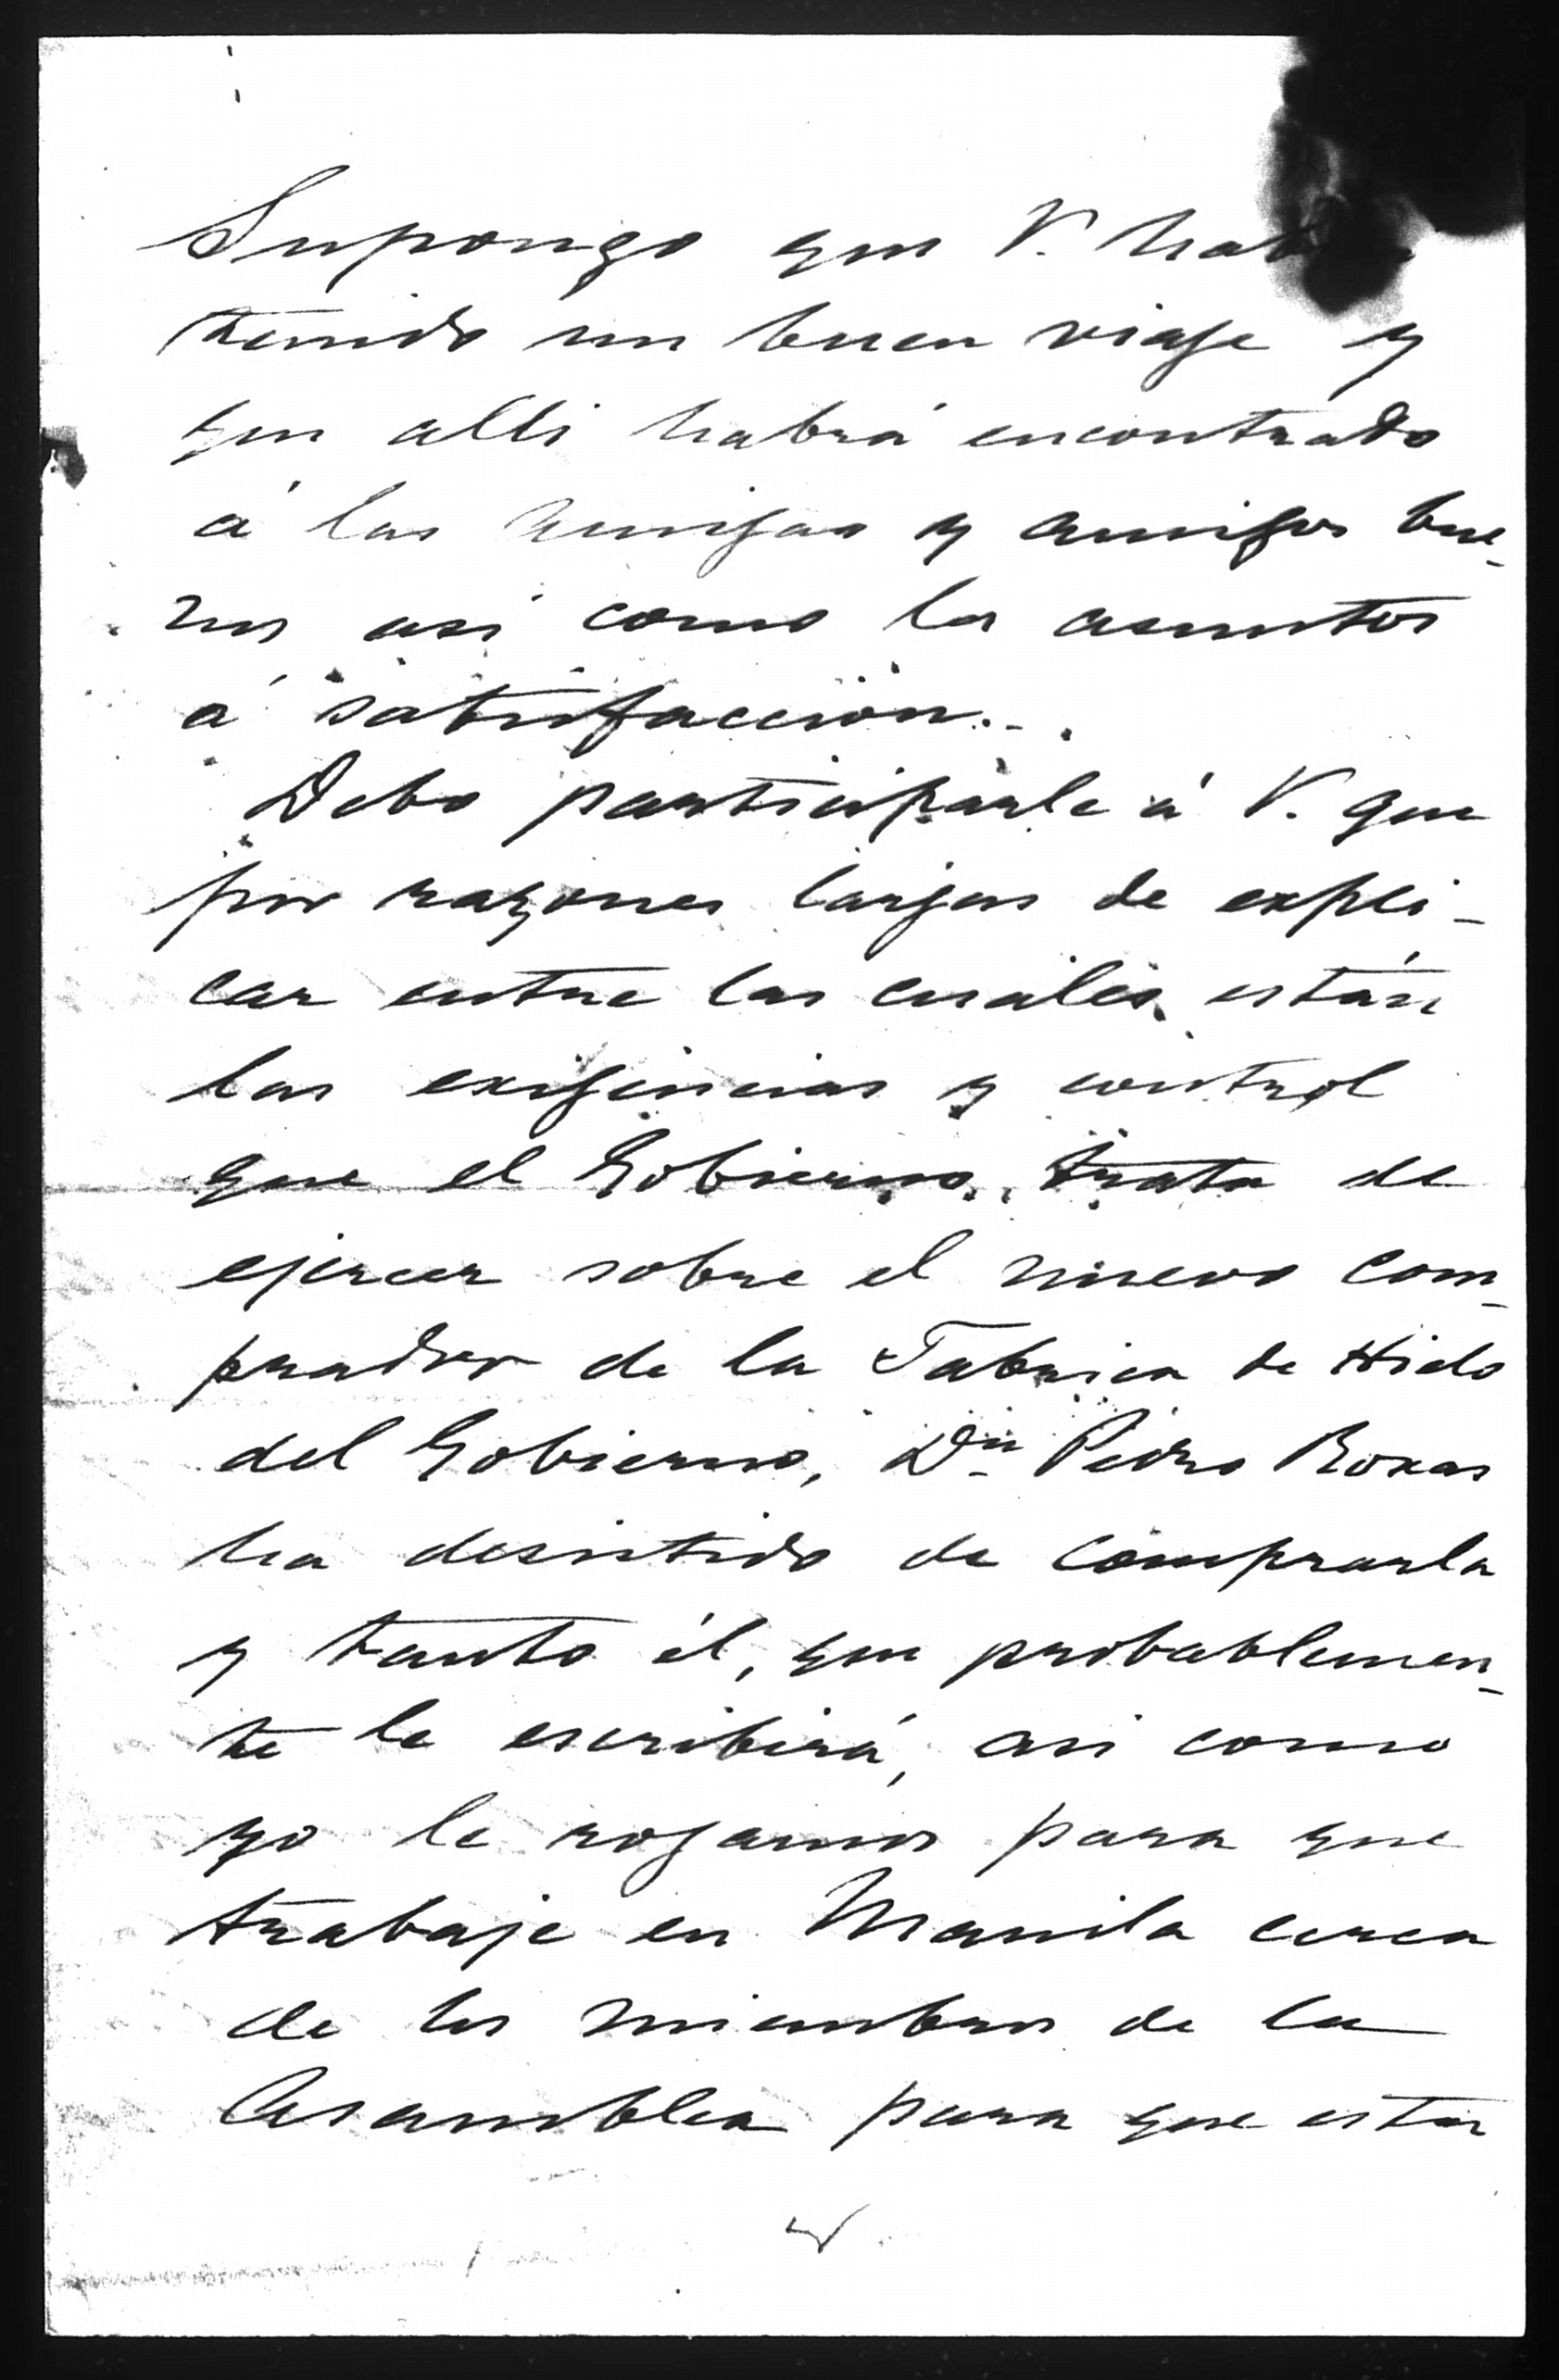 Supongo que V. habrá
tenido un buen viaje y
que alli habrá encontrado
á las amigas y amigos bue-
nos asi como los asuntos
á satisfaccion.
Debo participarle á V. que
por razones largas de expli-
car entre las cuales están
las exigencias y control
que el Gobierno trata de
ejercer sobre el nuevo com-
prador de la Fabrica de Hielo
del Gobierno, Dn Pedro Roxas
ha desistido de comprarla
y tanto él, que probablemen-
te le escribirá, asi como
yo le rogamos para que
trabaje en Manila cerca
de los miembros de la
Asamblea para que estos